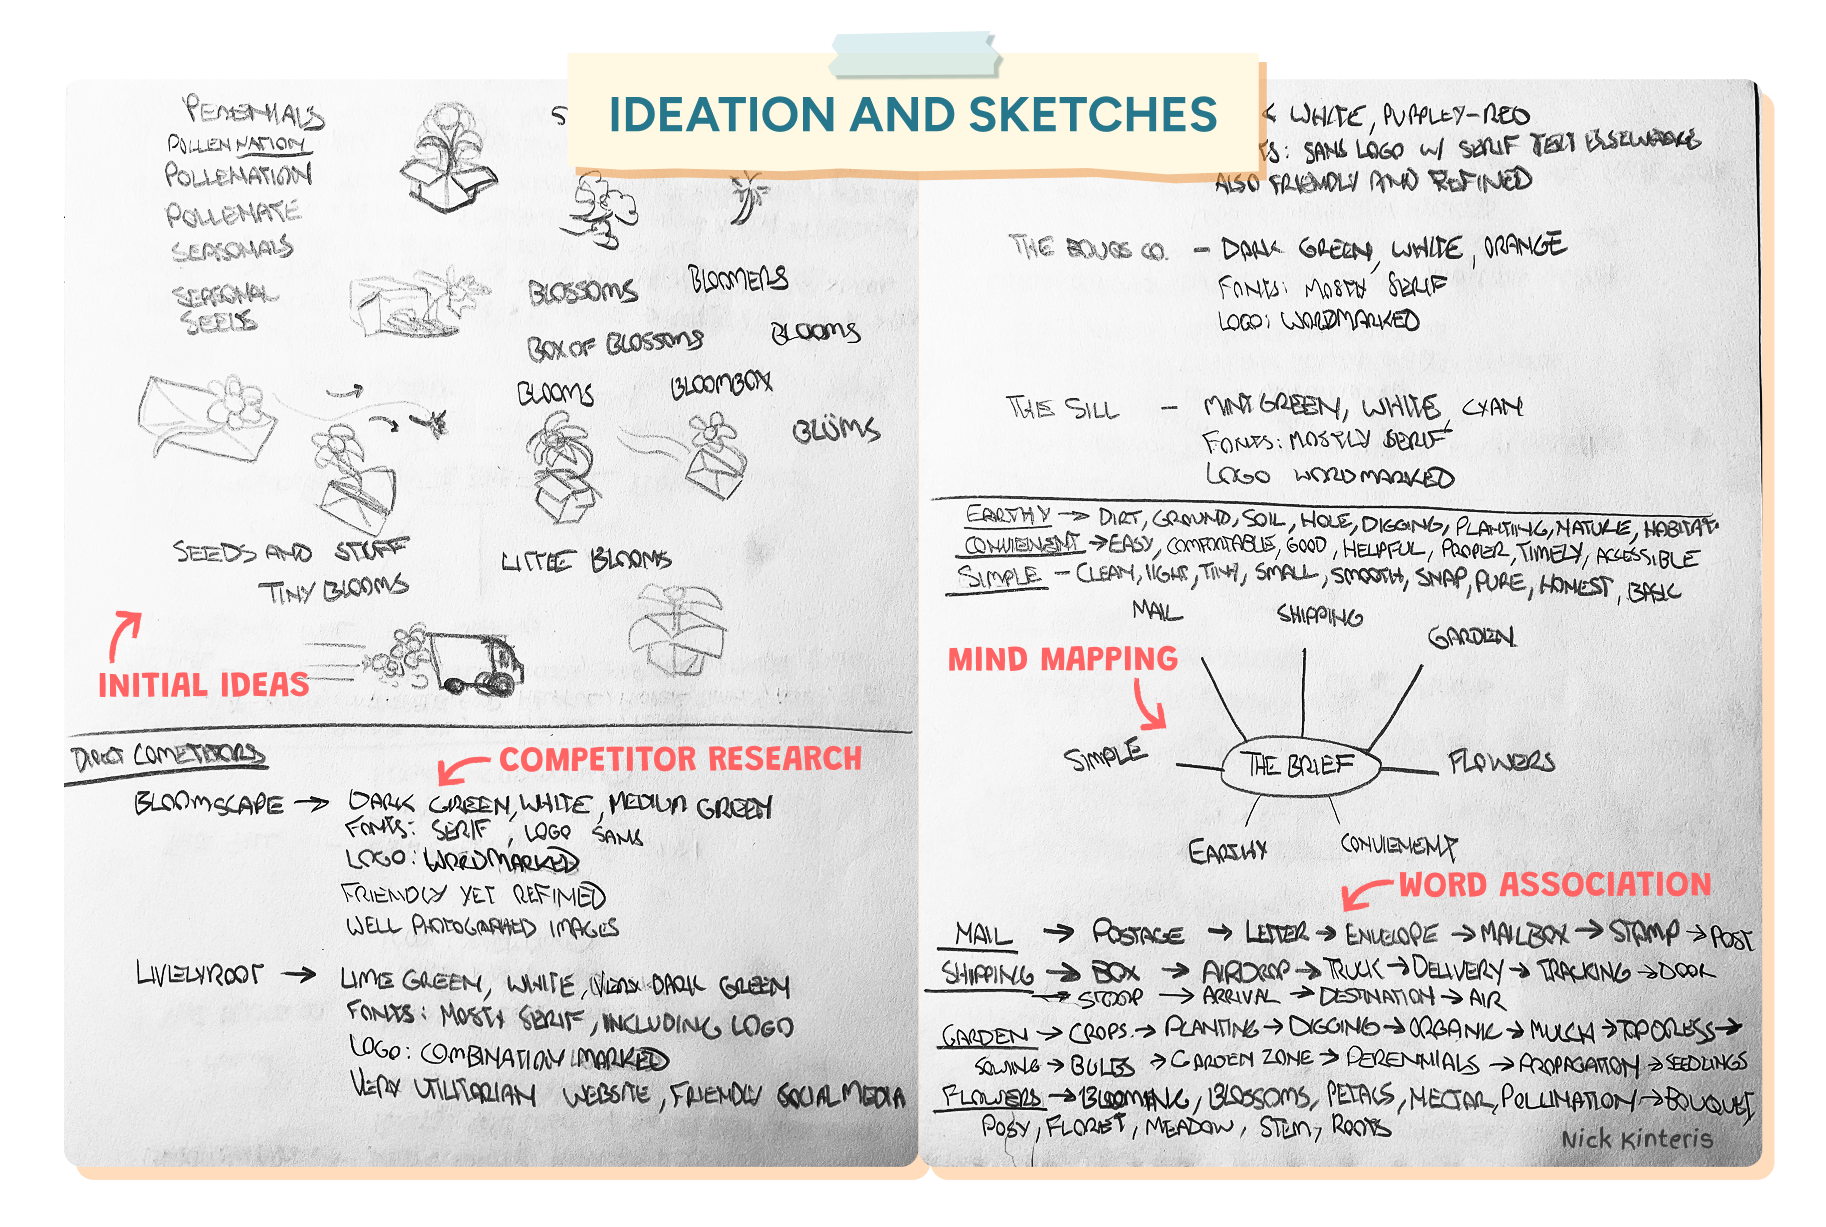 IDEATION AND SKETCHES
PERENNIALS
POLLENNATION
POLLENATION
POLLENATE
SEASONALS
SEASONAL
SEEDS
S
BLOSSOMS
BLOOMERS
BOX OF BLOSSOMS
BLOOMS
BLOOMS
BLOOMBOX
BLÜMS
SEEDS AND STUFF
LITTLE BLOOMS
TINY BLOOMS
INITIAL IDEAS
DIRECT COMETITORS
COMPETITOR RESEARCH
BLOOMSCAPE → DARK GREEN, WHITE, MEDIUM GREEN
FONTS: SERIF, LOGO SANS
LOGO: WORDMARKED
FRIENDLY YET REFINED
WELL PHOTOGRAPHED IMAGES
LIVELYROOT → LIME GREEN, WHITE, VERY DARK GREEN
FONTS: MOSTLY SERIF, INCLUDING LOGO
LOGO: COMBINATION MARKED
VERY UTILITARIAN WEBSITE, FRIENDLY SOCIAL MEDIA
WHITE, PURPLEY-RED
: SANS LOGO W/ SERIF TEXT ELSEWHERE
ALSO FRIENDLY AND REFINED
THE BOUQS CO. - DARK GREEN, WHITE, ORANGE
FONTS: MOSTLY SERIF
LOGO: WORDMARKED
THE SILL - MINT GREEN, WHITE, CYAN
FONTS: MOSTLY SERIF
LOGO WORDMARKED
EARTHY → DIRT, GROUND, SOIL, HOLE, DIGGING, PLANTING, NATURE, HABITAT
CONVIENENT → EASY, COMFORTABLE, GOOD, HELPFUL, PROPER, TIMELY, ACCESSIBLE
SIMPLE - CLEAN, LIGHT, TINY, SMALL, SMOOTH, SNAP, PURE, HONEST, BASIC
MAIL
SHIPPING
GARDEN
MIND MAPPING
SIMPLE
THE BRIEF
FLOWERS
EARTHY
CONVIENENT
WORD ASSOCIATION
MAIL → POSTAGE → LETTER → ENVELOPE → MAILBOX → STAMP → POST
SHIPPING → BOX → AIRDROP → TRUCK → DELIVERY → TRACKING → DOOR
→ STOOP → ARRIVAL → DESTINATION → AIR
GARDEN → CROPS → PLANTING → DIGGING → ORGANIC → MULCH → TOPDRESS →
SOWING → BULBS → GARDEN ZONE → PERENNIALS → PROPAGATION → SEEDLINGS
FLOWERS → BLOOMING, BLOSSOMS, PETALS, NECTAR, POLLINATION → BOUQUET,
POSY, FLORET, MEADOW, STEM, ROOTS
Nick Kinteris